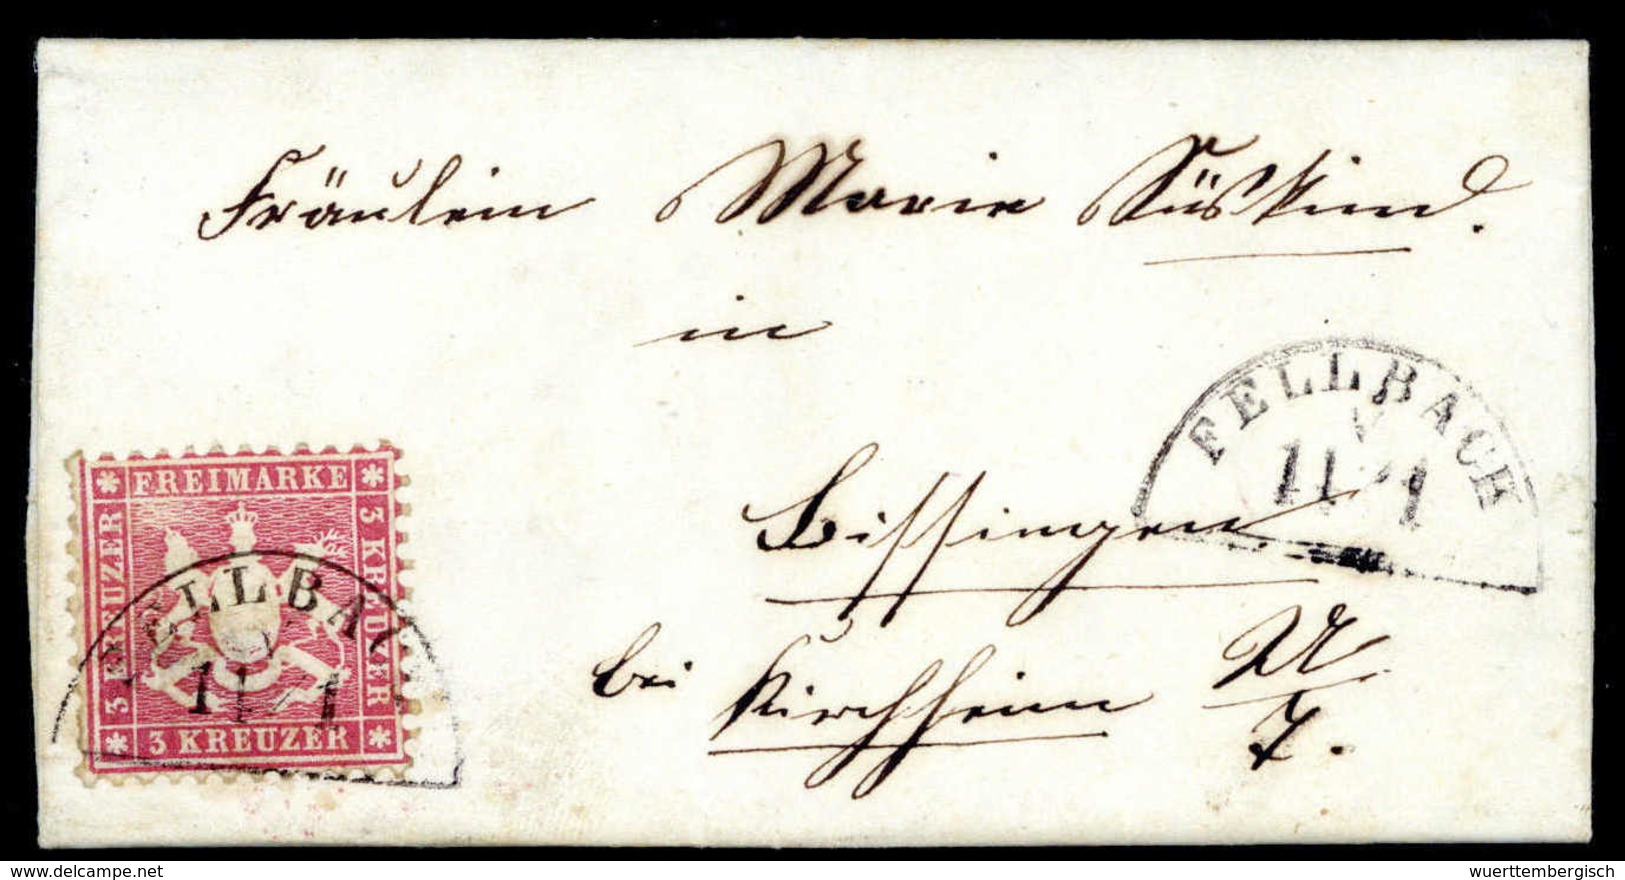 Fräulein Marie Süskind.
in
FELLBACH
11 1
Bissingen
bei Kirchheim u/T.
FREIMARKE
3 KREUZER
3 KREUZER
3 KREUZER
FELLBACH
11 1
© delcampe.net
wuerttembergisch